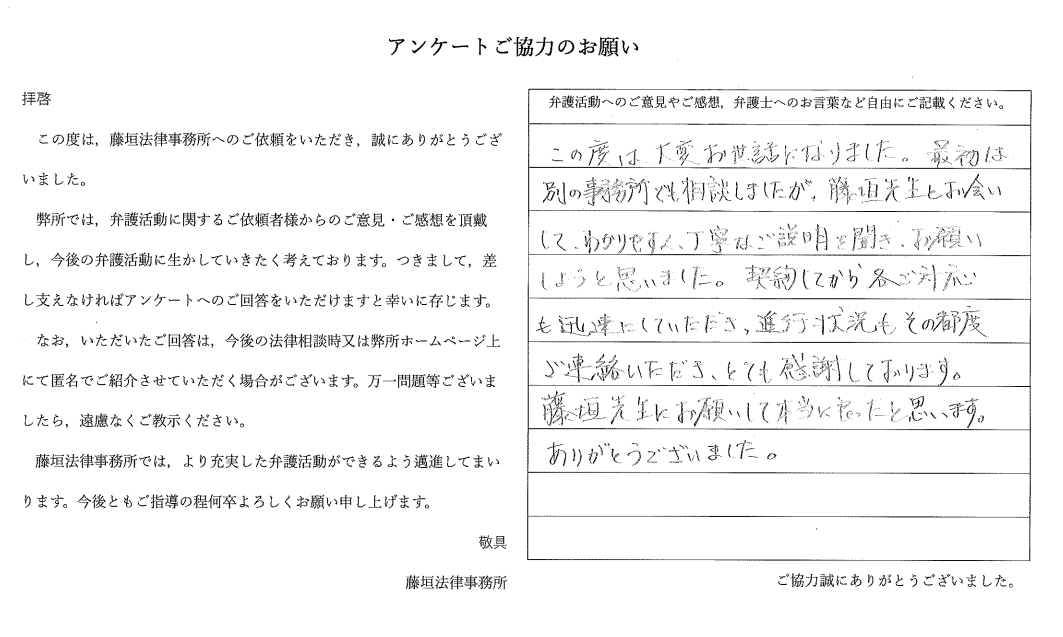 アンケートご協力のお願い
拝啓
この度は，藤垣法律事務所へのご依頼をいただき，誠にありがとうござ
いました。
弊所では，弁護活動に関するご依頼者様からのご意見・ご感想を頂戴
し，今後の弁護活動に生かしていきたく考えております。つきまして，差
し支えなければアンケートへのご回答をいただけますと幸いに存じます。
なお，いただいたご回答は，今後の法律相談時又は弊所ホームページ上
にて匿名でご紹介させていただく場合がございます。万一問題等ございま
したら，遠慮なくご教示ください。
藤垣法律事務所では，より充実した弁護活動ができるよう邁進してまい
ります。今後ともご指導の程何卒よろしくお願い申し上げます。
敬具
藤垣法律事務所
弁護活動へのご意見やご感想，弁護士へのお言葉など自由にご記載ください。
この度は、大変お世話になりました。最初は
別の事務所でも相談しましたが、藤垣先生とお会い
して、わかりやすく、丁寧なご説明を聞き、お願い
しようと思いました。契約してから各ご対応
も迅速にしていただき、進行状況もその都度
ご連絡いただき、とても感謝しております。
藤垣先生にお願いして本当に良かったと思います。
ありがとうございました。
ご協力誠にありがとうございました。